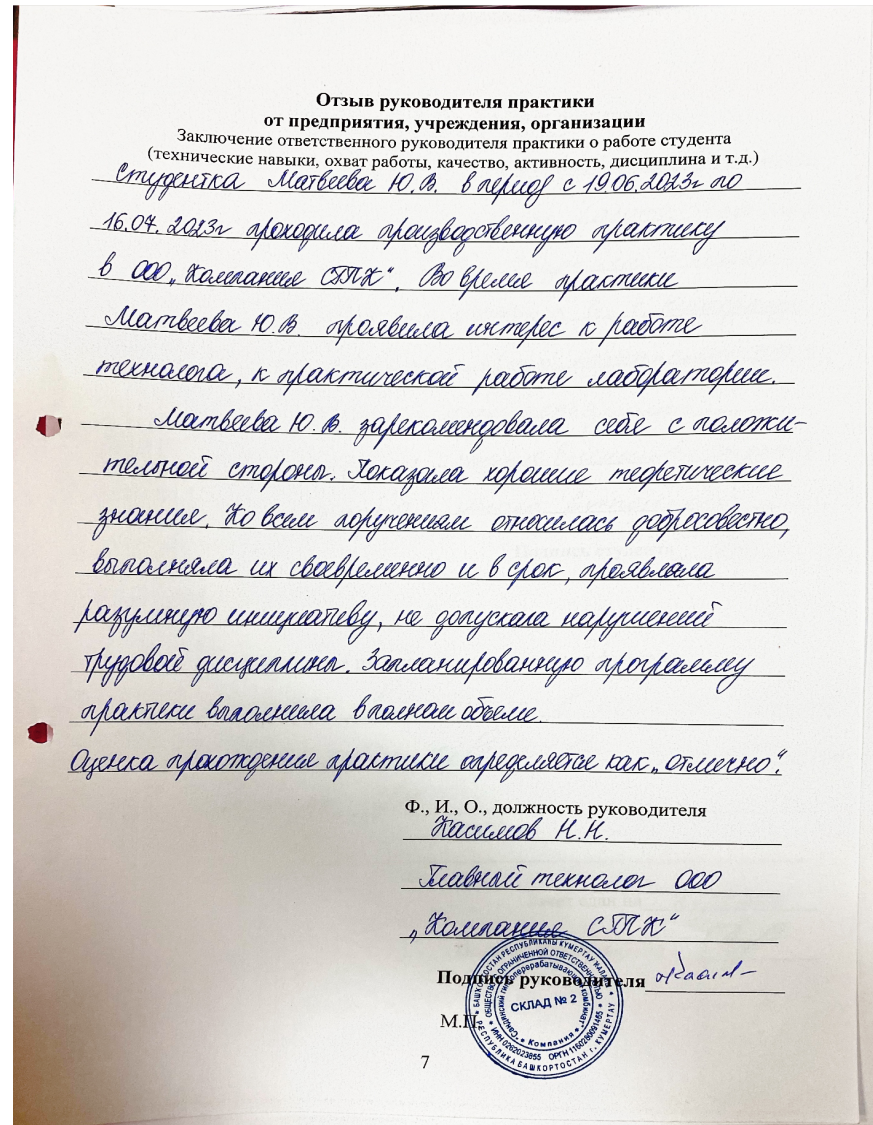 Отзыв руководителя практики
от предприятия, учреждения, организации
Заключение ответственного руководителя практики о работе студента
(технические навыки, охват работы, качество, активность, дисциплина и т.д.)
Студентка Матвеева Ю.В. в период с 19.06.2023г по
16.07.2023г проходила производственную практику
в ООО „Компания СТПК“. Во время практики
Матвеева Ю.В. проявила интерес к работе
технолога, к практической работе лаборатории.
Матвеева Ю.В. зарекомендовала себя с положи-
тельной стороны. Показала хорошие теоретические
знания. Ко всем поручениям относилась добросовестно,
выполняла их своевременно и в срок, проявляла
разумную инициативу, не допускала нарушений
трудовой дисциплины. Запланированную программу
практики выполнила в полном объеме.
Оценка прохождения практики определяется как „отлично“.
Ф., И., О., должность руководителя
Касимов Н.Н.
Главный технолог ООО
„Компания СТПК“
Подпись руководителя
М.П.
БАШКОРТОСТАН РЕСПУБЛИКАҺЫ КҮМЕРТАУ ҠАЛАҺЫ
РЕСПУБЛИКА БАШКОРТОСТАН г. КУМЕРТАУ
ОБЩЕСТВО С ОГРАНИЧЕННОЙ ОТВЕТСТВЕННОСТЬЮ
ИНН 0262023855 ОГРН 1160280091465
Компания
СКЛАД № 2
7